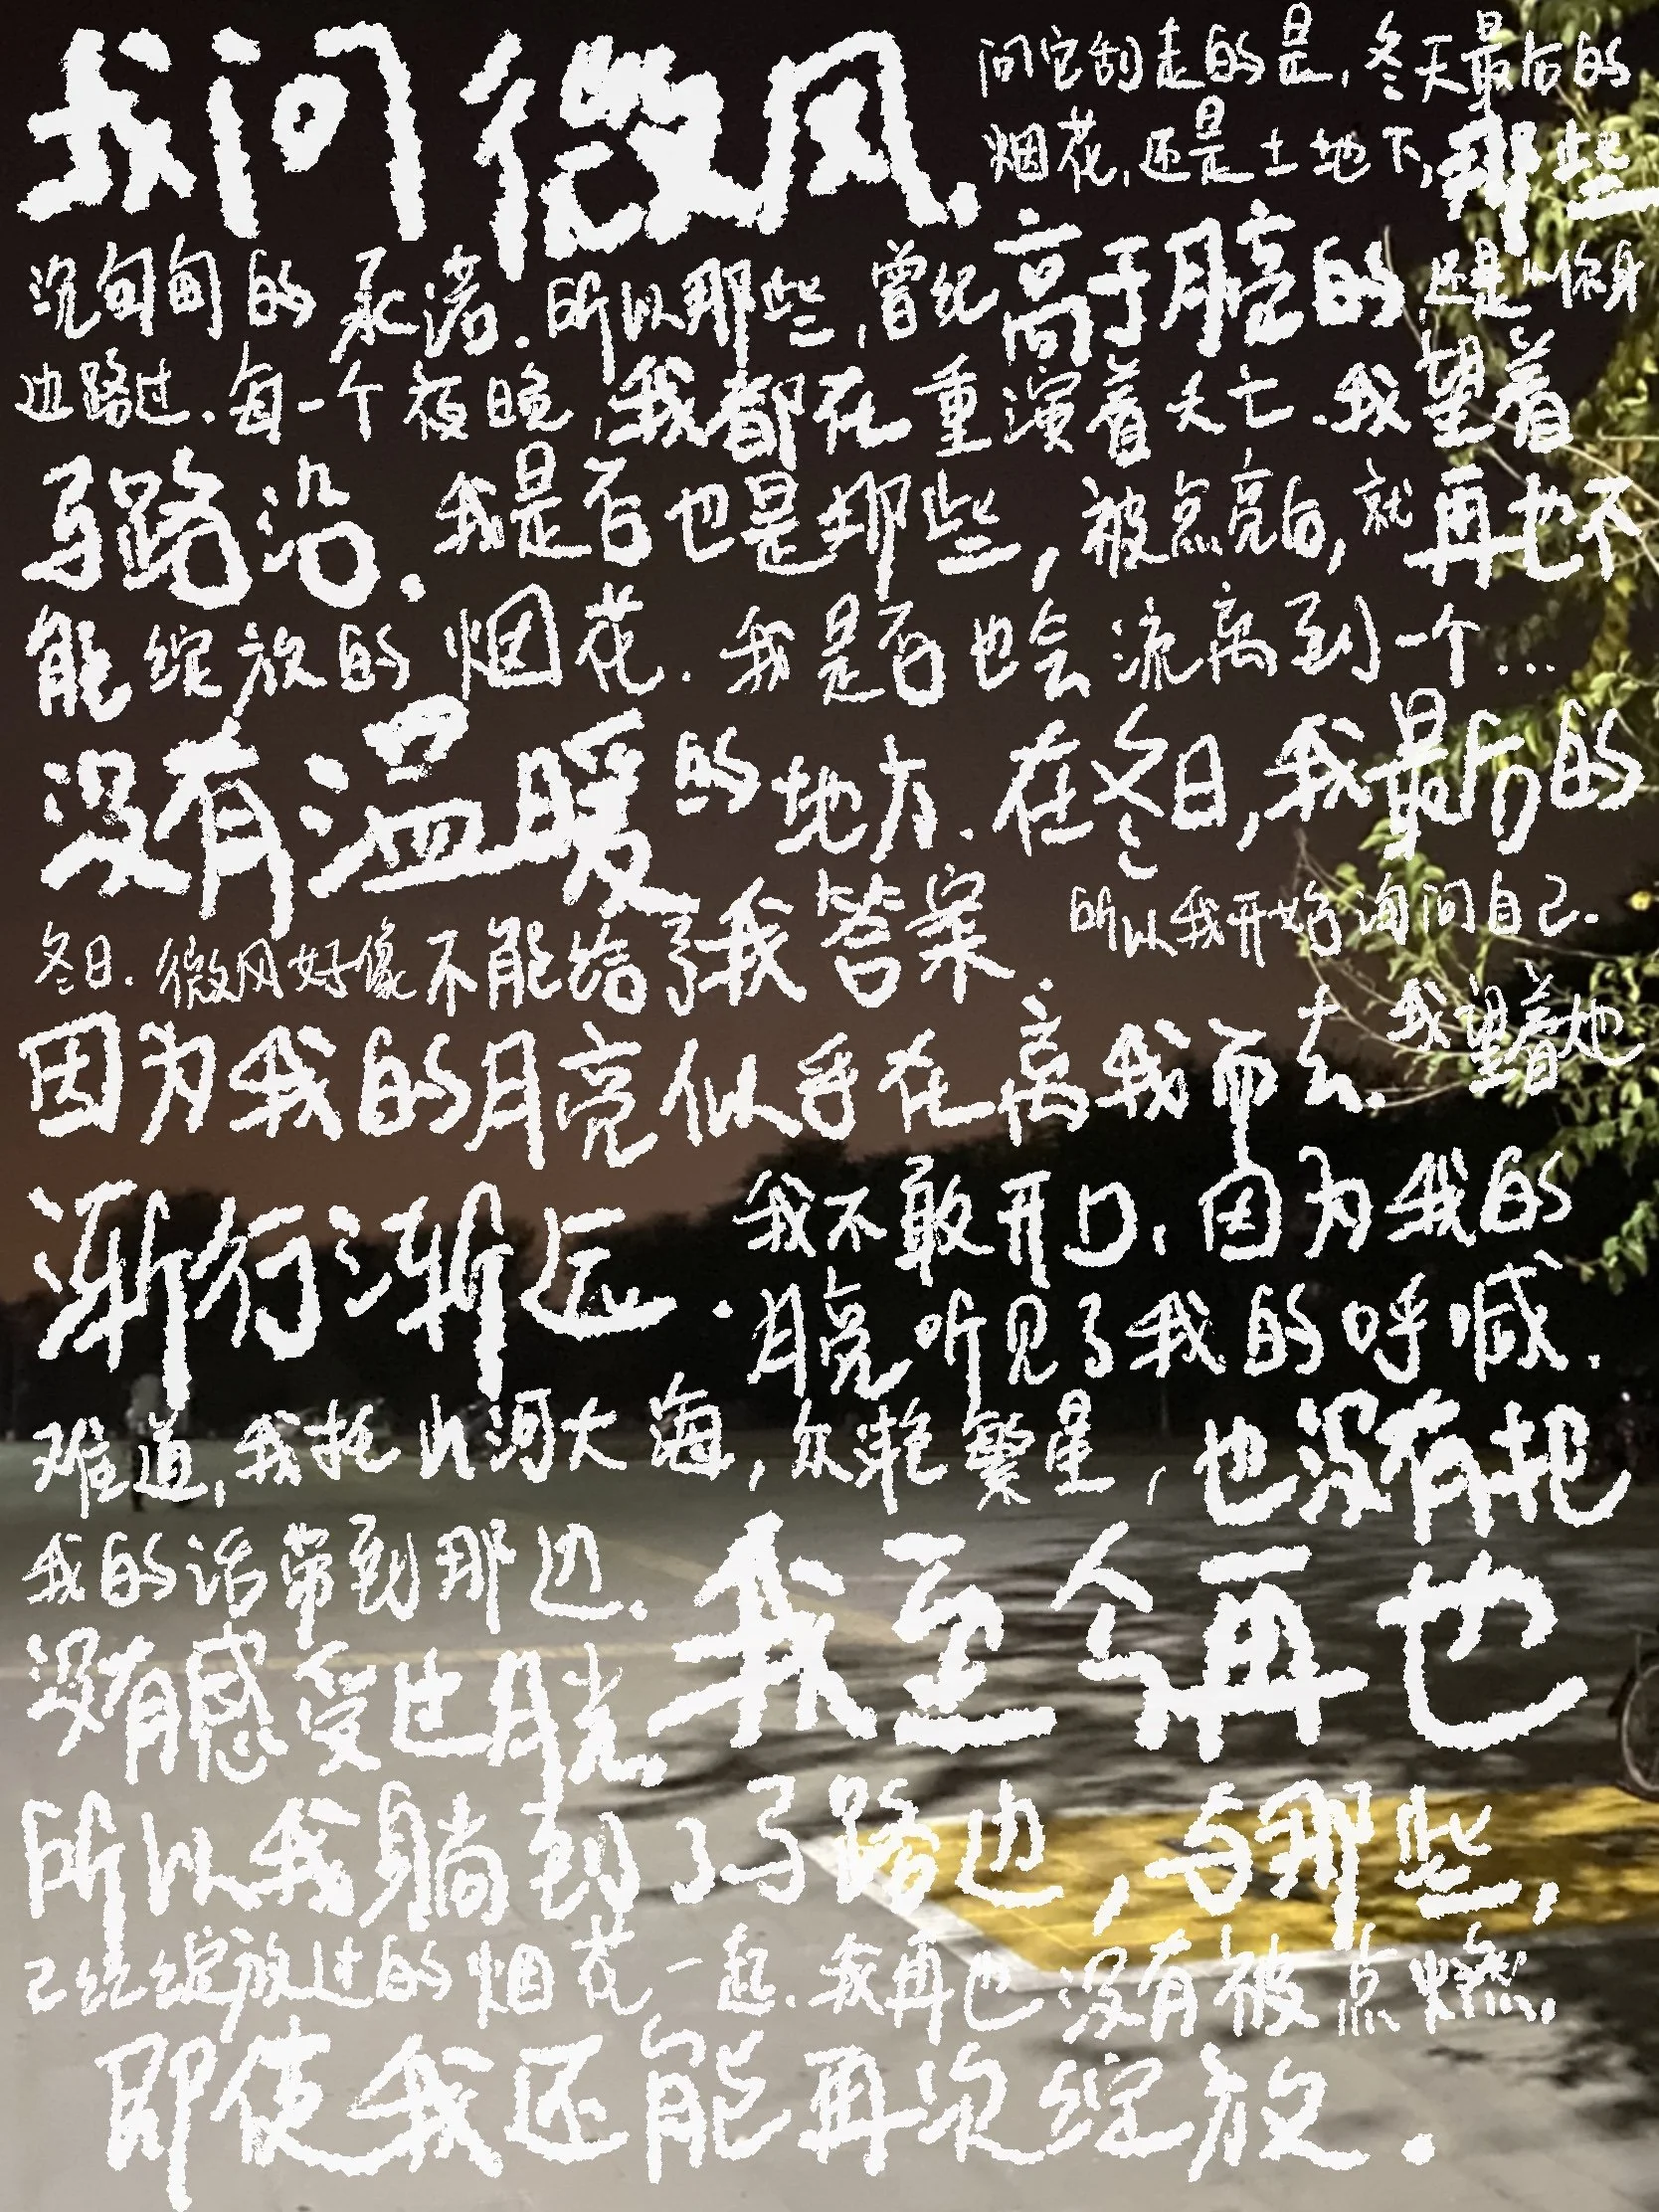 我问微风.
问它刮走的是,冬天最后的
烟花,还是土地下,那些
沉甸甸的承诺.所以那些,曾经高于月亮的,还是从你身
边路过.每一个夜晚,我都在重演着夭亡.我望着
马路沿.我是否也是那些,被点亮后,就再也不
能绽放的烟花.我是否也会流离到一个...
没有温暖的地方.在冬日,我最后的
冬日.微风好像不能给了我答案.所以我开始询问自己.
因为我的月亮似乎在离我而去.我望着她
渐行渐远.
我不敢开口,因为我的
月亮听见了我的呼喊.
难道,我托山河大海,众艳繁星,也没有把
我的话带到那边.我至今再也
没有感受过月光.
所以我躺到了马路边,与那些,
已经绽放过的烟花一起.我再也没有被点燃,
即使我还能再次绽放.